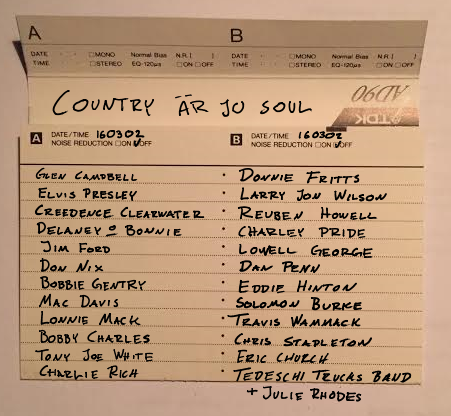 A B
DATE □MONO Normal Bias N.R.[ ] DATE □MONO Normal Bias N.R.[ ]
TIME □STEREO EQ-120µs □ON □OFF TIME □STEREO EQ-120µs □ON □OFF
COUNTRY ÄR JU SOUL
AD60
TDK
A DATE/TIME 160302 B DATE/TIME
NOISE REDUCTION □ON □OFF NOISE REDUCTION □ON □OFF
GLEN CAMPBELL · DONNIE FRITTS
ELVIS PRESLEY · LARRY JON WILSON
CREEDENCE CLEARWATER · REUBEN HOWELL
DELANEY & BONNIE · CHARLEY PRIDE
JIM FORD · LOWELL GEORGE
DON NIX · DAN PENN
BOBBIE GENTRY · EDDIE HINTON
MAC DAVIS · SOLOMON BURKE
LONNIE MACK · TRAVIS WAMMACK
BOBBY CHARLES · CHRIS STAPLETON
TONY JOE WHITE · ERIC CHURCH
CHARLIE RICH · TEDESCHI TRUCKS BAND
+ JULIE RHODES